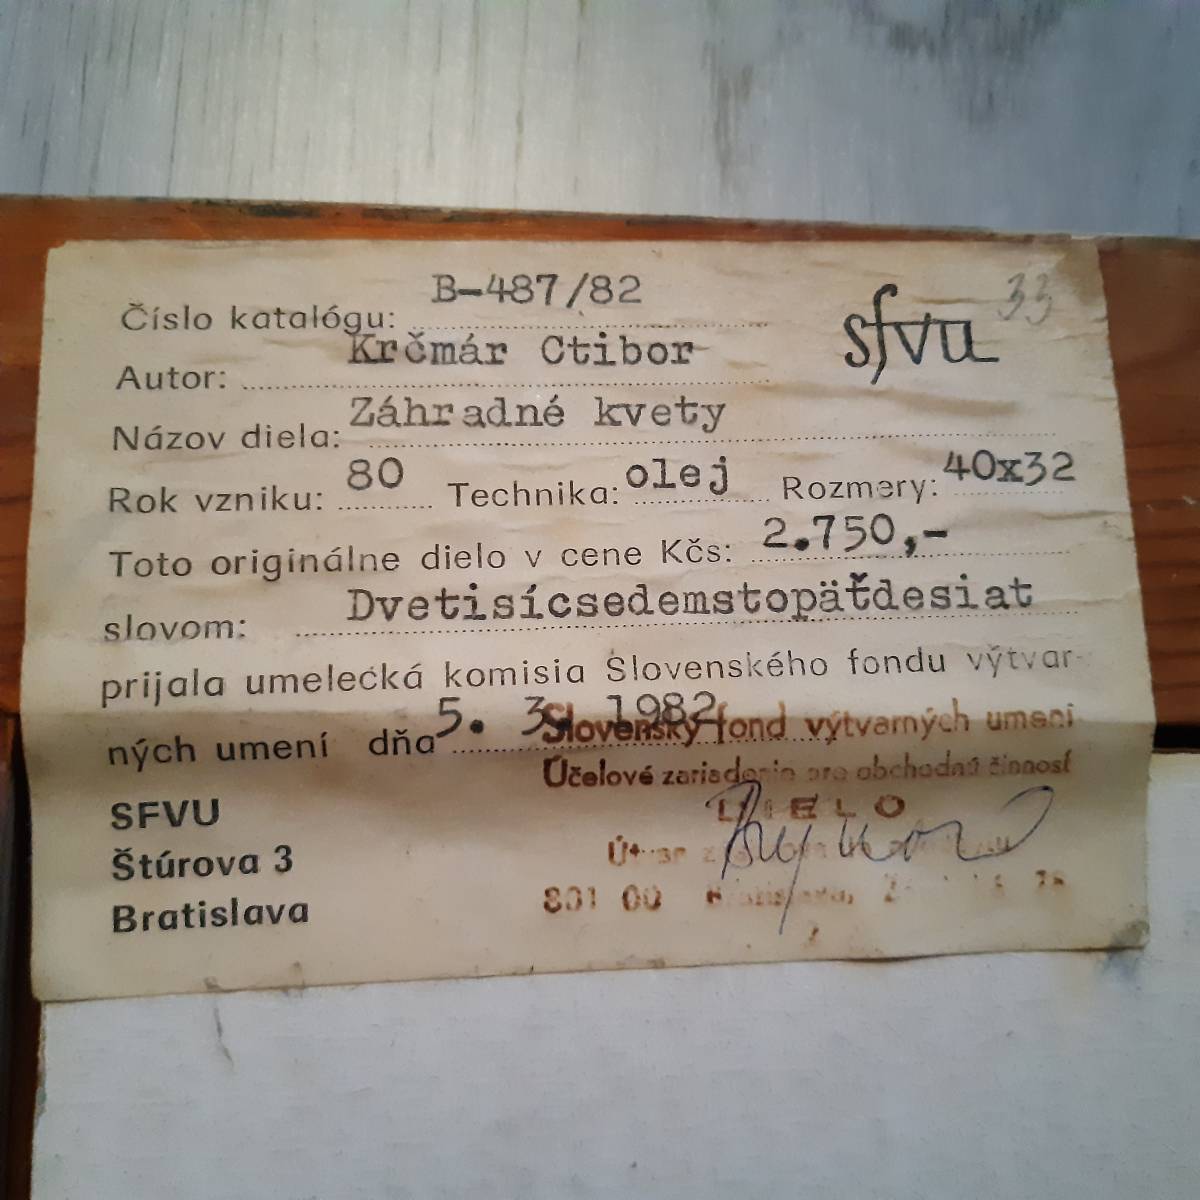 Číslo katalógu: B-487/82
sfvu 33
Autor: Krčmár Ctibor
Názov diela: Záhradné kvety
Rok vzniku: 80 Technika: olej Rozmery: 40x32
Toto originálne dielo v cene Kčs: 2.750,-
slovom: Dvetisícsedemstopäťdesiat
prijala umelecká komisia Slovenského fondu výtvar-
ných umení dňa 5. 3. 1982
Slovenský fond výtvarných umení
Účelové zariadenie pre obchodnú činnosť
DIELO
801 00 Bratislava,
SFVU
Štúrova 3
Bratislava